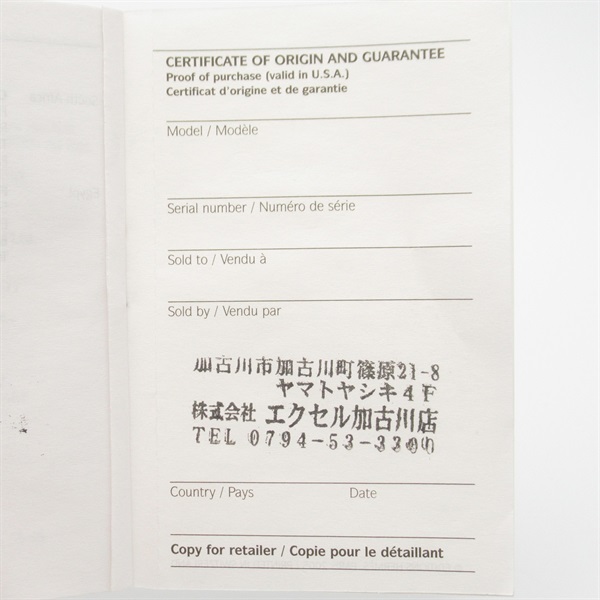 CERTIFICATE OF ORIGIN AND GUARANTEE
Proof of purchase (valid in U.S.A.)
Certificat d'origine et de garantie
Model / Modèle
Serial number / Numéro de série
Sold to / Vendu à
Sold by / Vendu par
加古川市加古川町篠原21-8
ヤマトヤシキ4F
株式会社 エクセル加古川店
TEL 0794-53-3300
Country / Pays Date
Copy for retailer / Copie pour le détaillant